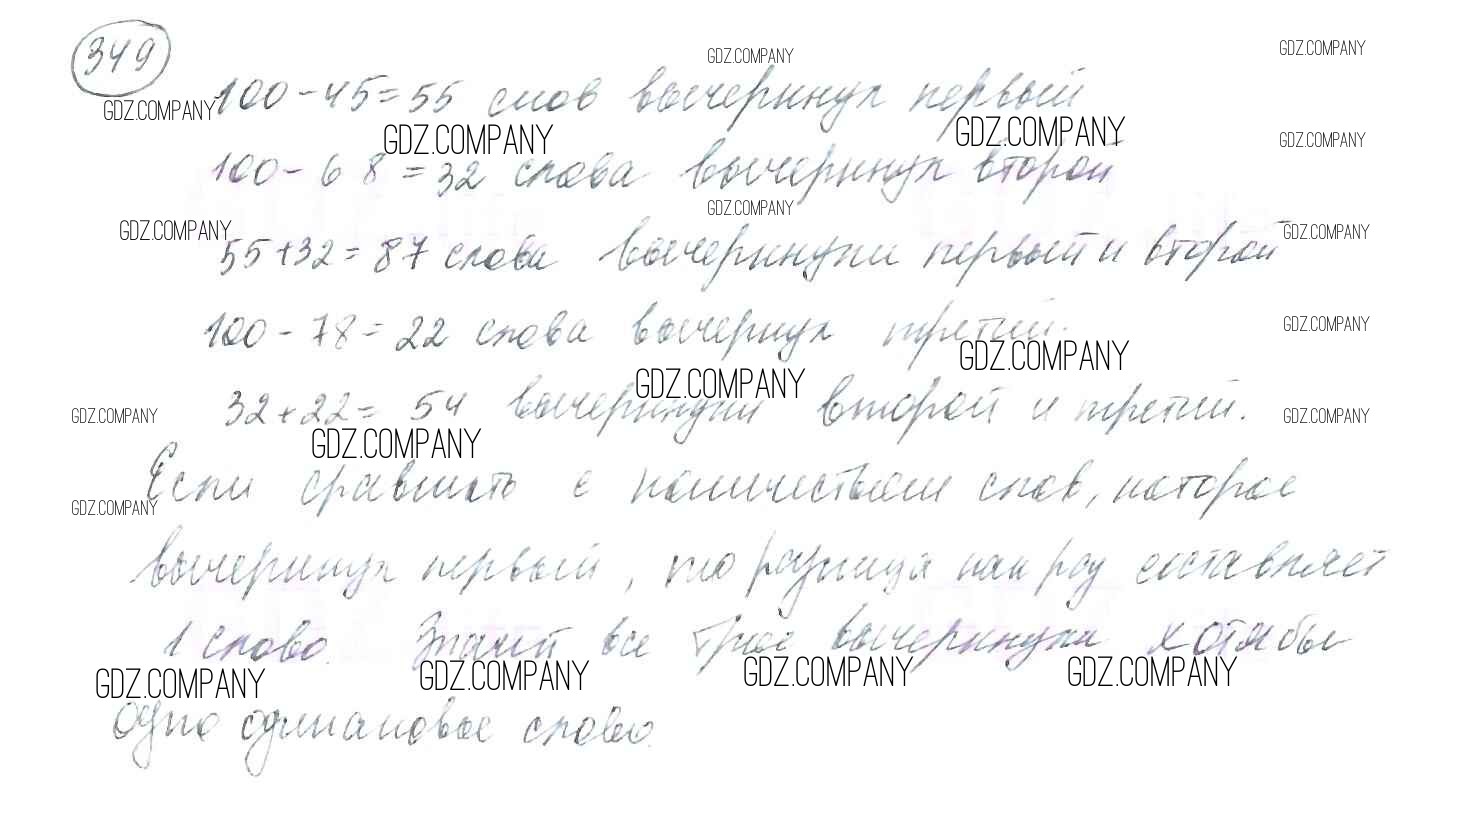 349
GDZ.COMPANY
GDZ.COMPANY
100 - 45 = 55 слов вычеринул первый
GDZ.COMPANY
GDZ.COMPANY
GDZ.COMPANY
GDZ.COMPANY
100 - 68 = 32 слова вычеринул второй
GDZ.COMPANY
GDZ.COMPANY
GDZ.COMPANY
55 + 32 = 87 слова вычеринули первый и второй
GDZ.COMPANY
100 - 78 = 22 слова вычернул третий.
GDZ.COMPANY
GDZ.COMPANY
GDZ.COMPANY
GDZ.COMPANY
32 + 22 = 54 вычеринули второй и третий.
GDZ.COMPANY
Если сравнить с количеством слов, которое
GDZ.COMPANY
вычеринул первый, то разница как раз составляет
1 слово. Значит все трое вычеринули хотя бы
GDZ.COMPANY
GDZ.COMPANY
GDZ.COMPANY
GDZ.COMPANY
одно одинаковое слово.